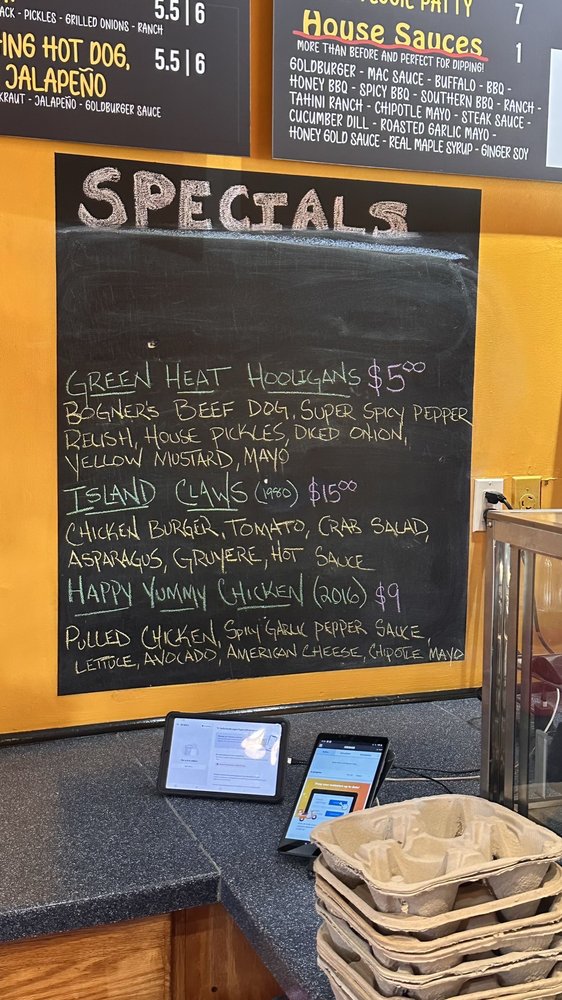 ACK - PICKLES - GRILLED ONIONS - RANCH
5.5 | 6
HOT DOG,
JALAPEÑO
5.5 | 6
KRAUT - JALAPEÑO - GOLDBURGER SAUCE
PATTY
7
House Sauces
1
MORE THAN BEFORE AND PERFECT FOR DIPPING!
GOLDBURGER - MAC SAUCE - BUFFALO - BBQ -
HONEY BBQ - SPICY BBQ - SOUTHERN BBQ - RANCH -
TAHINI RANCH - CHIPOTLE MAYO - STEAK SAUCE -
CUCUMBER DILL - ROASTED GARLIC MAYO -
HONEY GOLD SAUCE - REAL MAPLE SYRUP - GINGER SOY
SPECIALS
GREEN HEAT HOOLIGANS $5.00
BOGNER'S BEEF DOG, SUPER SPICY PEPPER
RELISH, HOUSE PICKLES, DICED ONION,
YELLOW MUSTARD, MAYO
ISLAND CLAWS (1980) $15.00
CHICKEN BURGER, TOMATO, CRAB SALAD,
ASPARAGUS, GRUYERE, HOT SAUCE
HAPPY YUMMY CHICKEN (2016) $9
PULLED CHICKEN, SPICY GARLIC PEPPER SAUCE,
LETTUCE, AVOCADO, AMERICAN CHEESE, CHIPOTLE MAYO